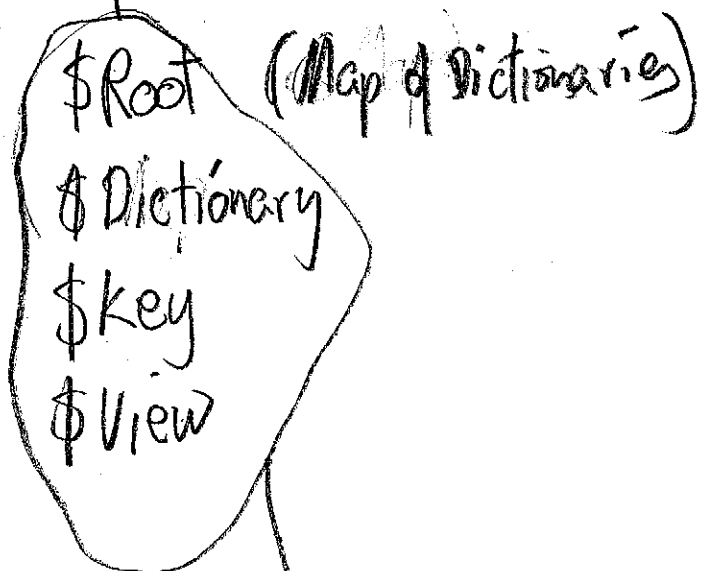 $Root (Map of Dictionaries)
$Dictionary
$Key
$View